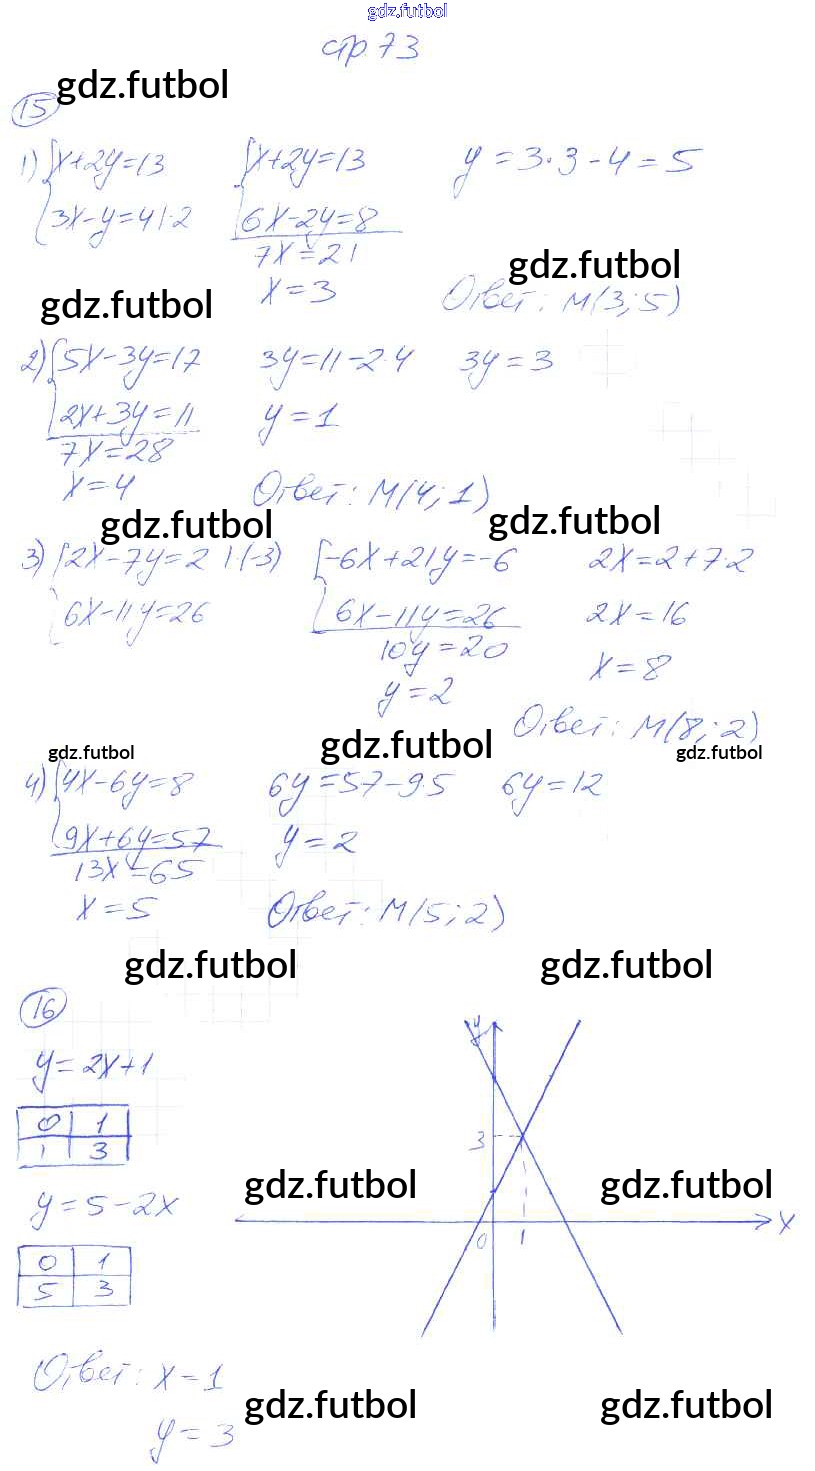 gdz.futbol
стр. 73
gdz.futbol
15
1) {x+2y=13 {x+2y=13 y = 3·3-4 = 5
3x-y=4|·2 6x-2y=8
7x=21
gdz.futbol
x=3
gdz.futbol
Ответ: M(3;5)
2) {5x-3y=17 3y=11-2·4 3y=3
2x+3y=11 y=1
7x=28
x=4 Ответ: M(4;1)
gdz.futbol gdz.futbol
3) {2x-7y=2 |·(-3) {-6x+21y=-6 2x=2+7·2
6x-11y=26 6x-11y=26 2x=16
10y=20 x=8
y=2
Ответ: M(8;2)
gdz.futbol gdz.futbol gdz.futbol
4) {4x-6y=8 6y=57-9·5 6y=12
9x+6y=57 y=2
13x=65
x=5 Ответ: M(5;2)
gdz.futbol gdz.futbol
16
y=2x+1
0 1
1 3
y=5-2x
0 1
5 3
y
3
gdz.futbol gdz.futbol
0 1 x
Ответ: x=1
y=3
gdz.futbol gdz.futbol